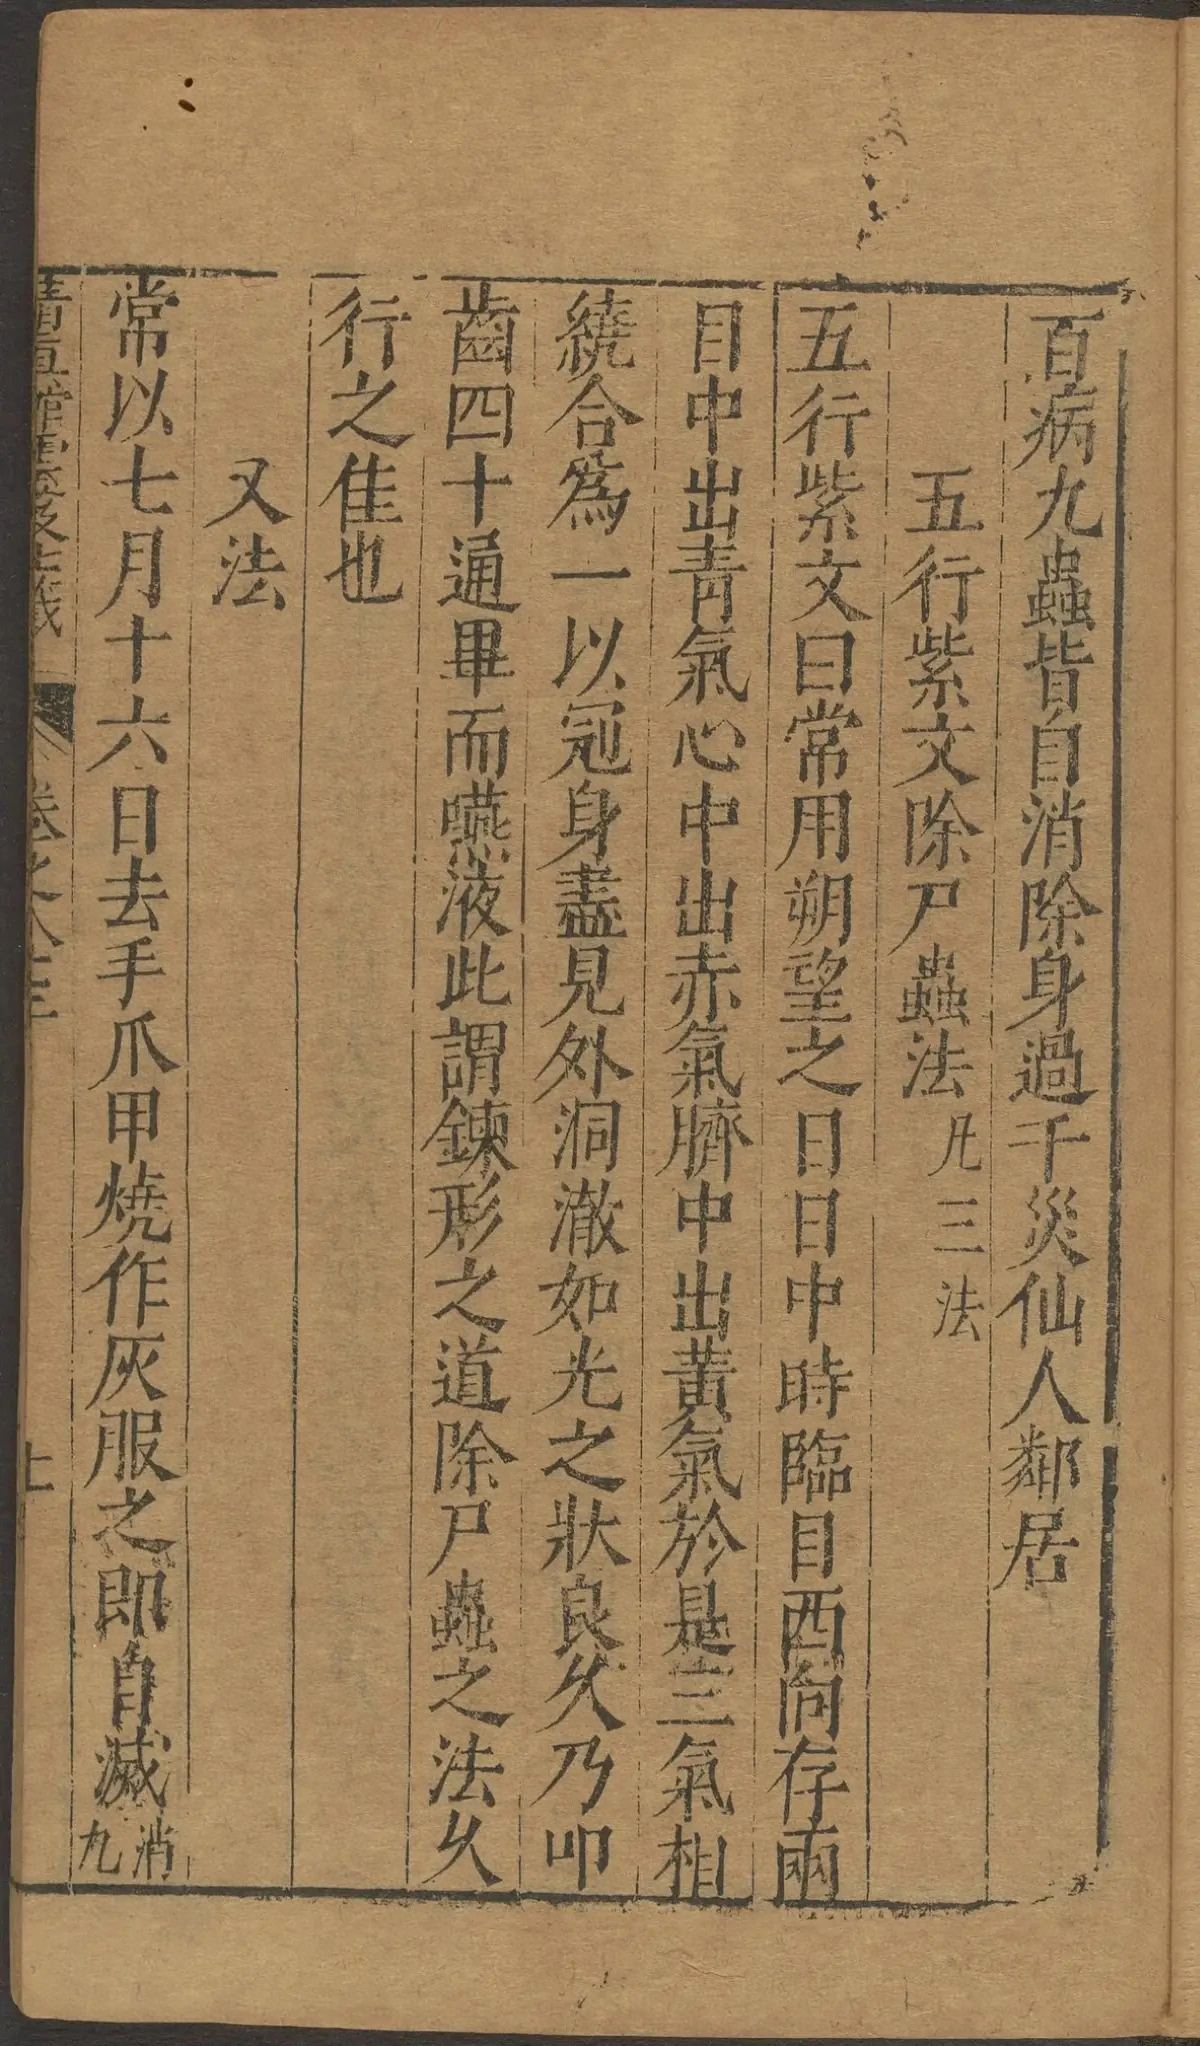 百病九蟲皆自消除身過千災仙人鄰居
五行紫文除尸蟲法凡三法
五行紫文曰常用朔望之日日中時臨目西向存兩
目中出靑氣心中出赤氣臍中出黃氣於是三氣相
繞合為一以冠身盡見外洞澈如光之狀良久乃叩
齒四十通畢而嚥液此謂鍊形之道除尸蟲之法久
行之佳也
又法
常以七月十六日去手爪甲燒作灰服之即自滅消九
卷之八十三
上